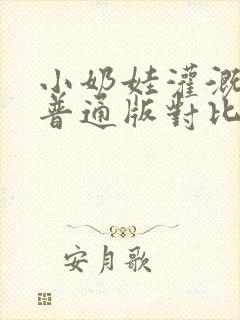 小奶娃灌溉
普通版對比
安月歌